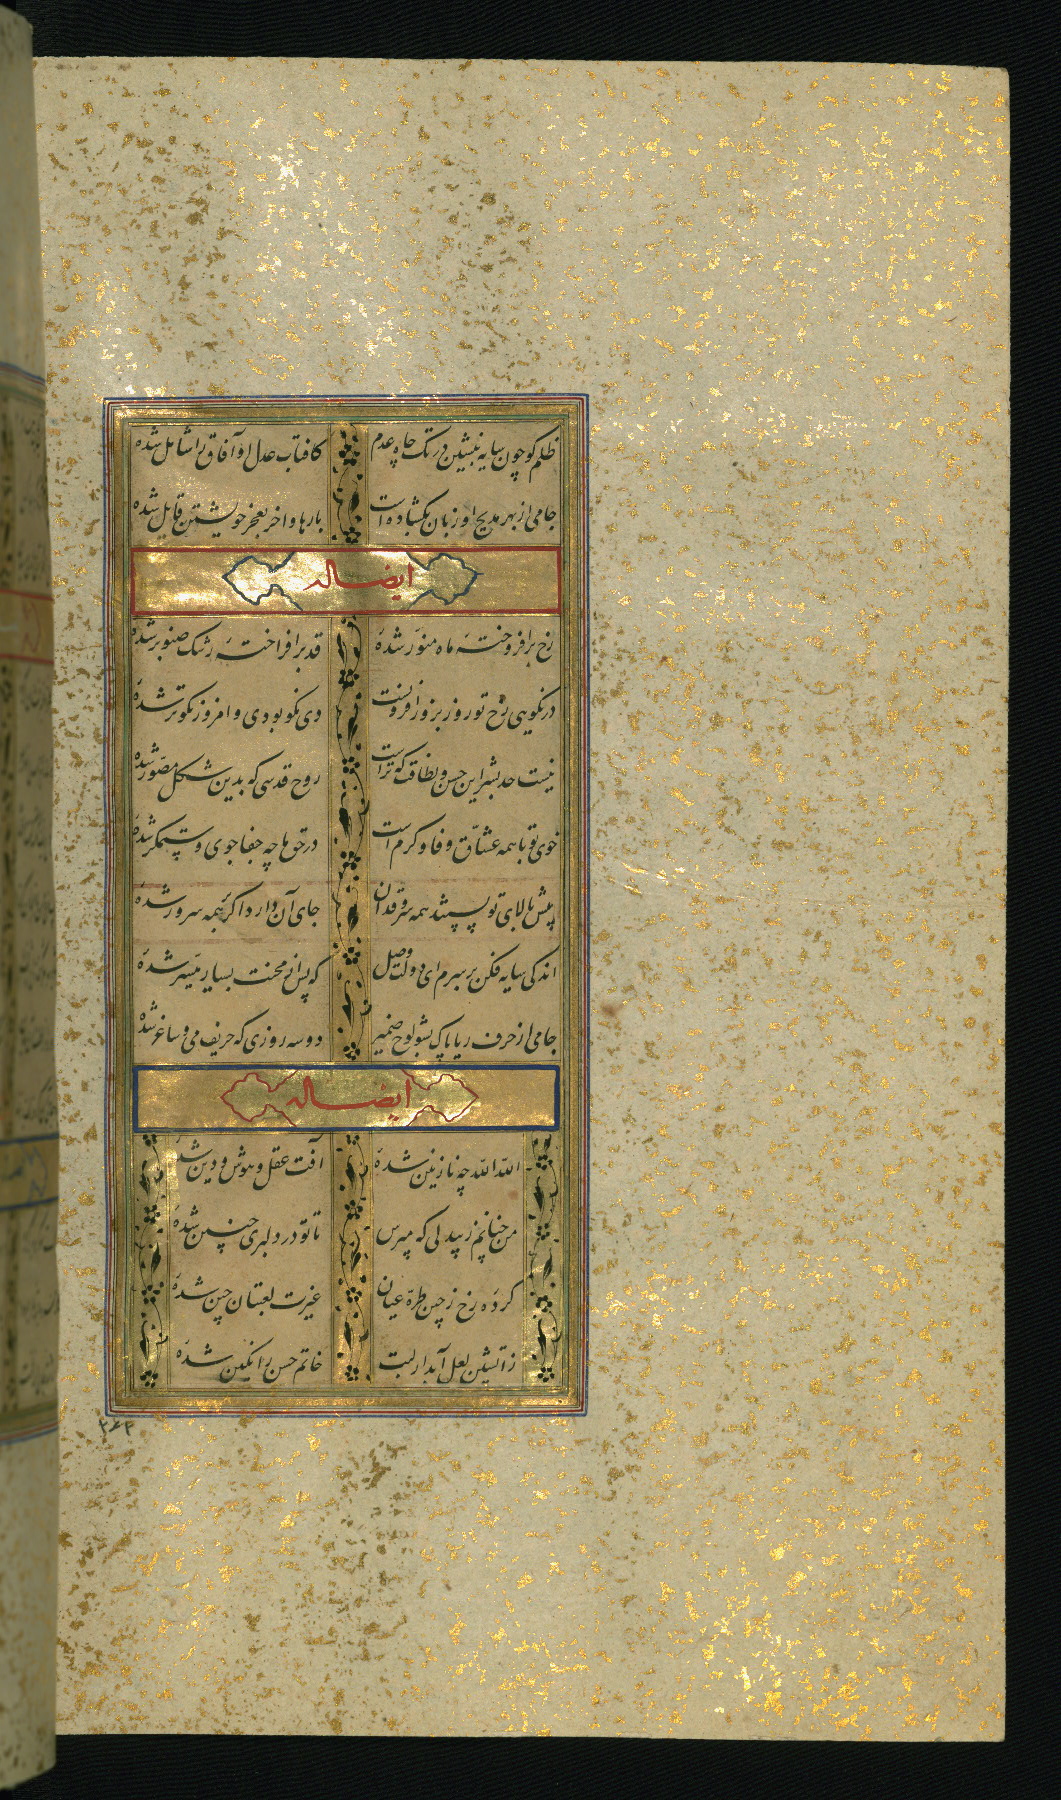 ظلم کو چون سایه بنشین در تک چاه عدم کافتاب عدل او آفاق را شامل شده
جامی از بهر مدیح او زبان بگشاده است بارها و آخر بعجز خویشتن قایل شده
ایضا له
رخ برافروختهٔ ماه منور شدهٔ قد برافراختهٔ رشک صنوبر شدهٔ
در نکویی رخ تو روز بروز افزونست دی نکو بودی و امروز نکوتر شدهٔ
نیست حد بشر این حسن و لطافت که تراست روح قدسی که بدین شکل مصور شدهٔ
خوی تو با همه عشاق وفا و کرم است در حق ما چه جفاجوی و ستمگر شدهٔ
پیش بالای تو پستند همه سروقدان جای آن دارد اگر بر همه سرور شدهٔ
اندکی سایه فکن بر سرم ای دولت وصل که پس از محنت بسیار میسر شدهٔ
جامی از حرف ریا پاک بشو لوح ضمیر دو سه روزی که حریف می و ساغر شدهٔ
ایضا له
الله الله چه نازنین شدهٔ آفت عقل و هوش و دین شدهٔ
من چنانم ز بیدلی که مپرس تا تو در دلبری چنین شدهٔ
کرده رخ ز چین طره عیان غیرت لعبتان چین شدهٔ
ز آتشین لعل آبدار لبت خاتم حسن را نگین شدهٔ